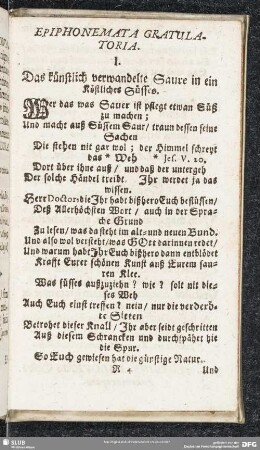 EPIPHONEMATA GRATULA-
TORIA.
I.
Das künstlich verwandelte Saure in ein
Köstliches Süsses.
Wer das was Sauer ist pflegt etwan Süß
zu machen;
Und macht auß Süssem Saur/ traun dessen seine
Sachen
Die stehen nit gar wol; der Himmel schreyt
das * Weh * Jes. V. 20.
Dort über ihne auß/ und daß der untergeh
Der solche Händel treibt. Ihr werdet ja das
wissen.
Herr Doctor: die Ihr habt bißhero Euch beflissen/
Deß Allerhöchsten Wort/ auch in der Spra-
che Grund
Zu lesen/ was da steht im alt- und neuen Bund.
Und also wol versteht/ was GOtt darinnen redet/
Und warum habt Ihr Euch bißhero dann entblödet
Krafft Eurer schönen Kunst auß Eurem sau-
ren Klee.
Was süsses außzuziehn? wie? solt nit die-
ses Weh
Auch Euch einst treffen? nein/ nur die verderb-
te Sitten
Betrohet dieser Knall/ Ihr aber seidt geschritten
Auß diesem Schrancken und durchspähet hie
die Spur.
So Euch gewiesen hat die günstige Natur.
N 4 Und
SLUB
DFG